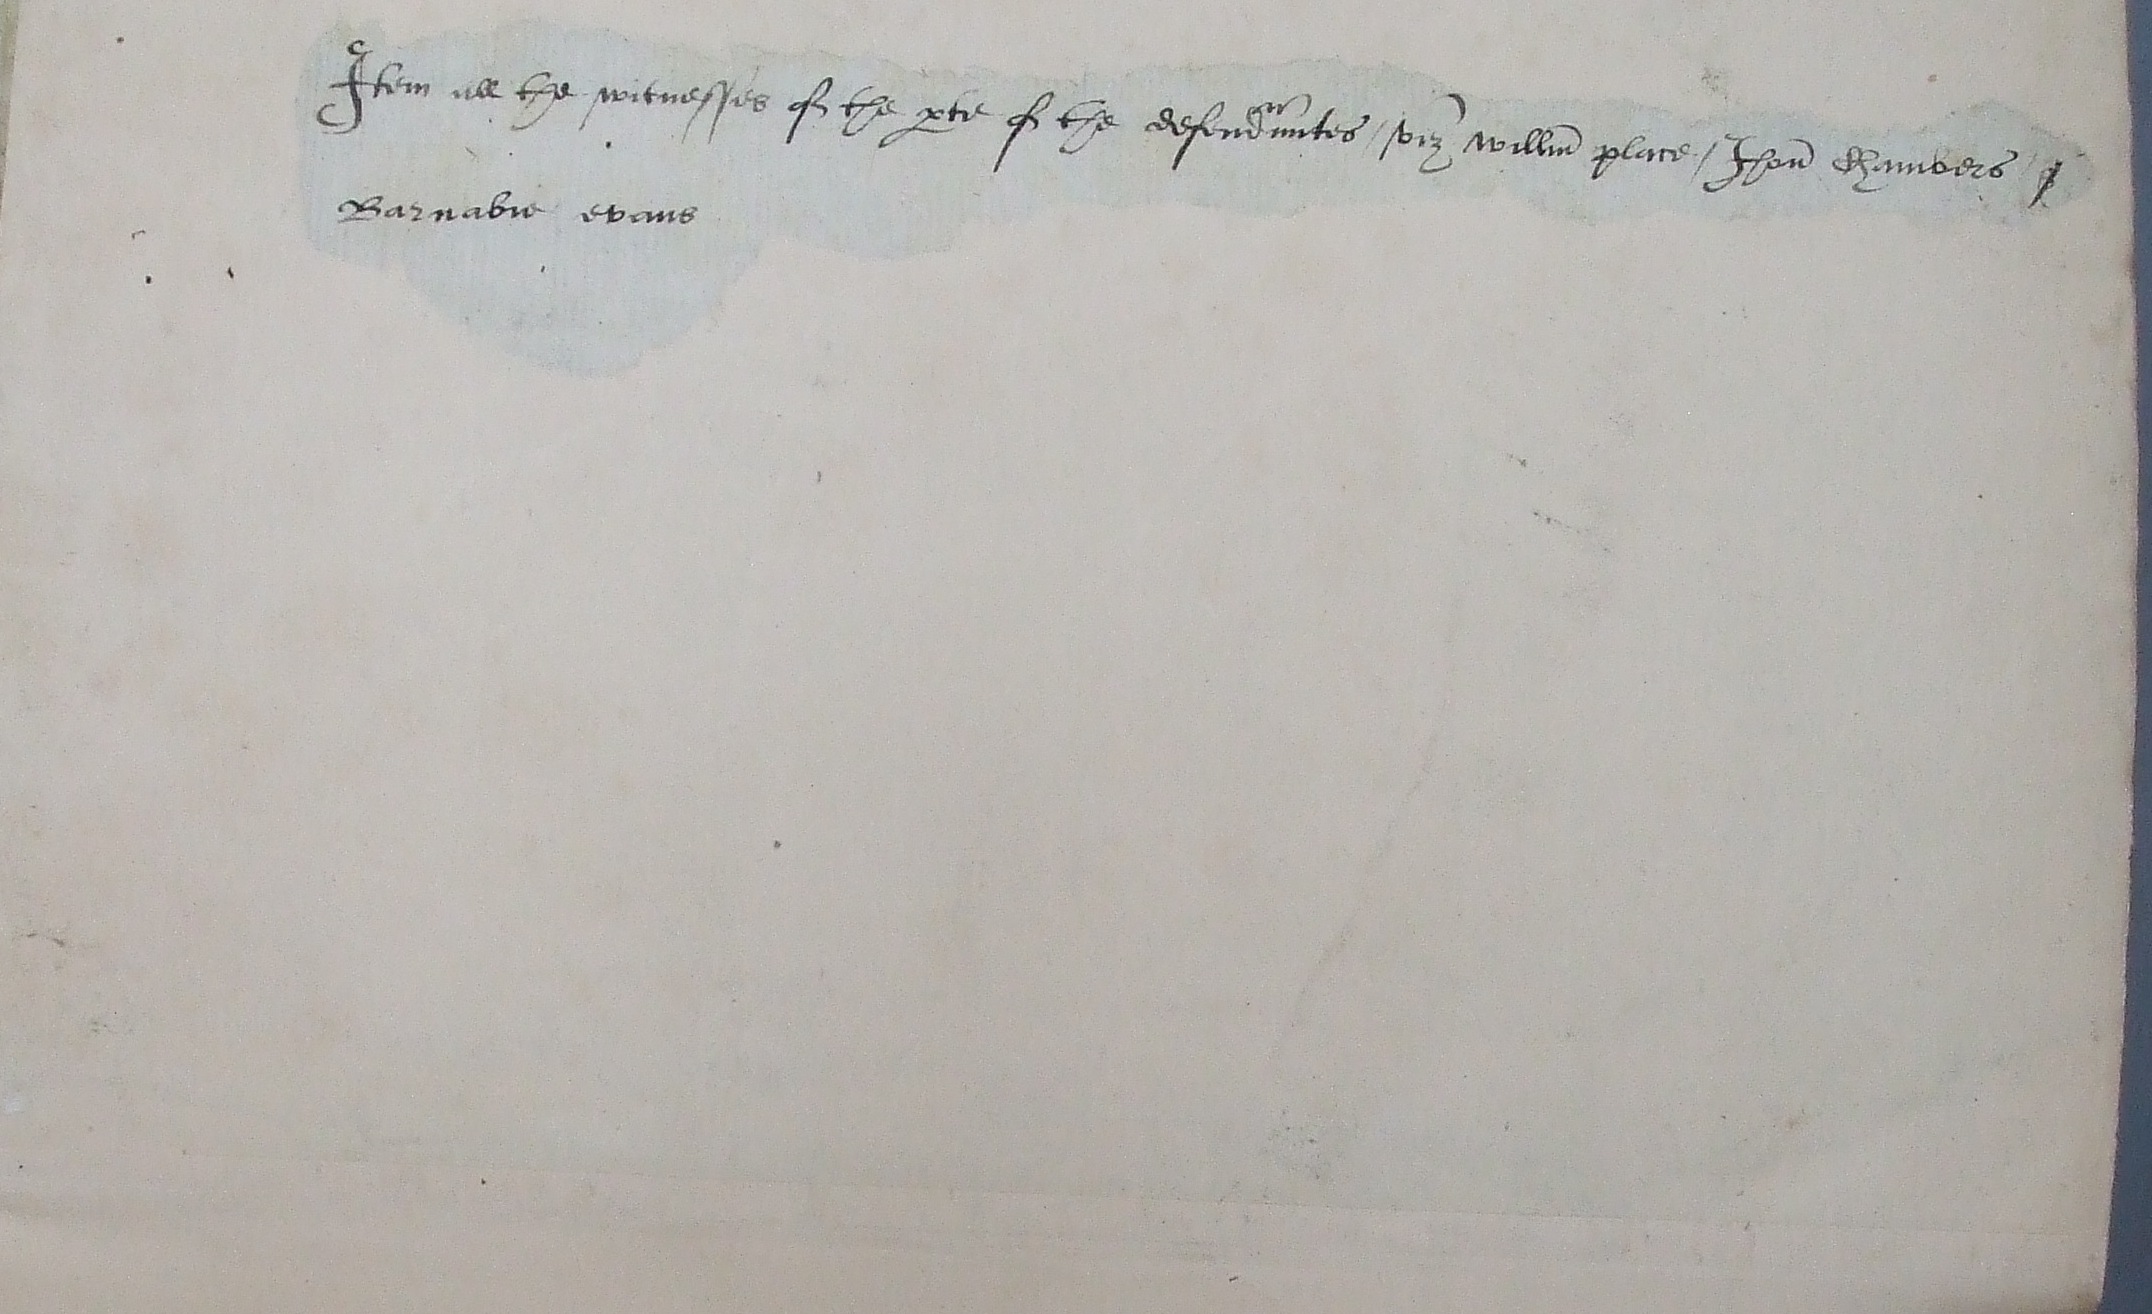 Item all the witnesses of the ꝑte of the defendauntes / viz willm̄ place / Jhon̄ Chambers /
Barnabie evans